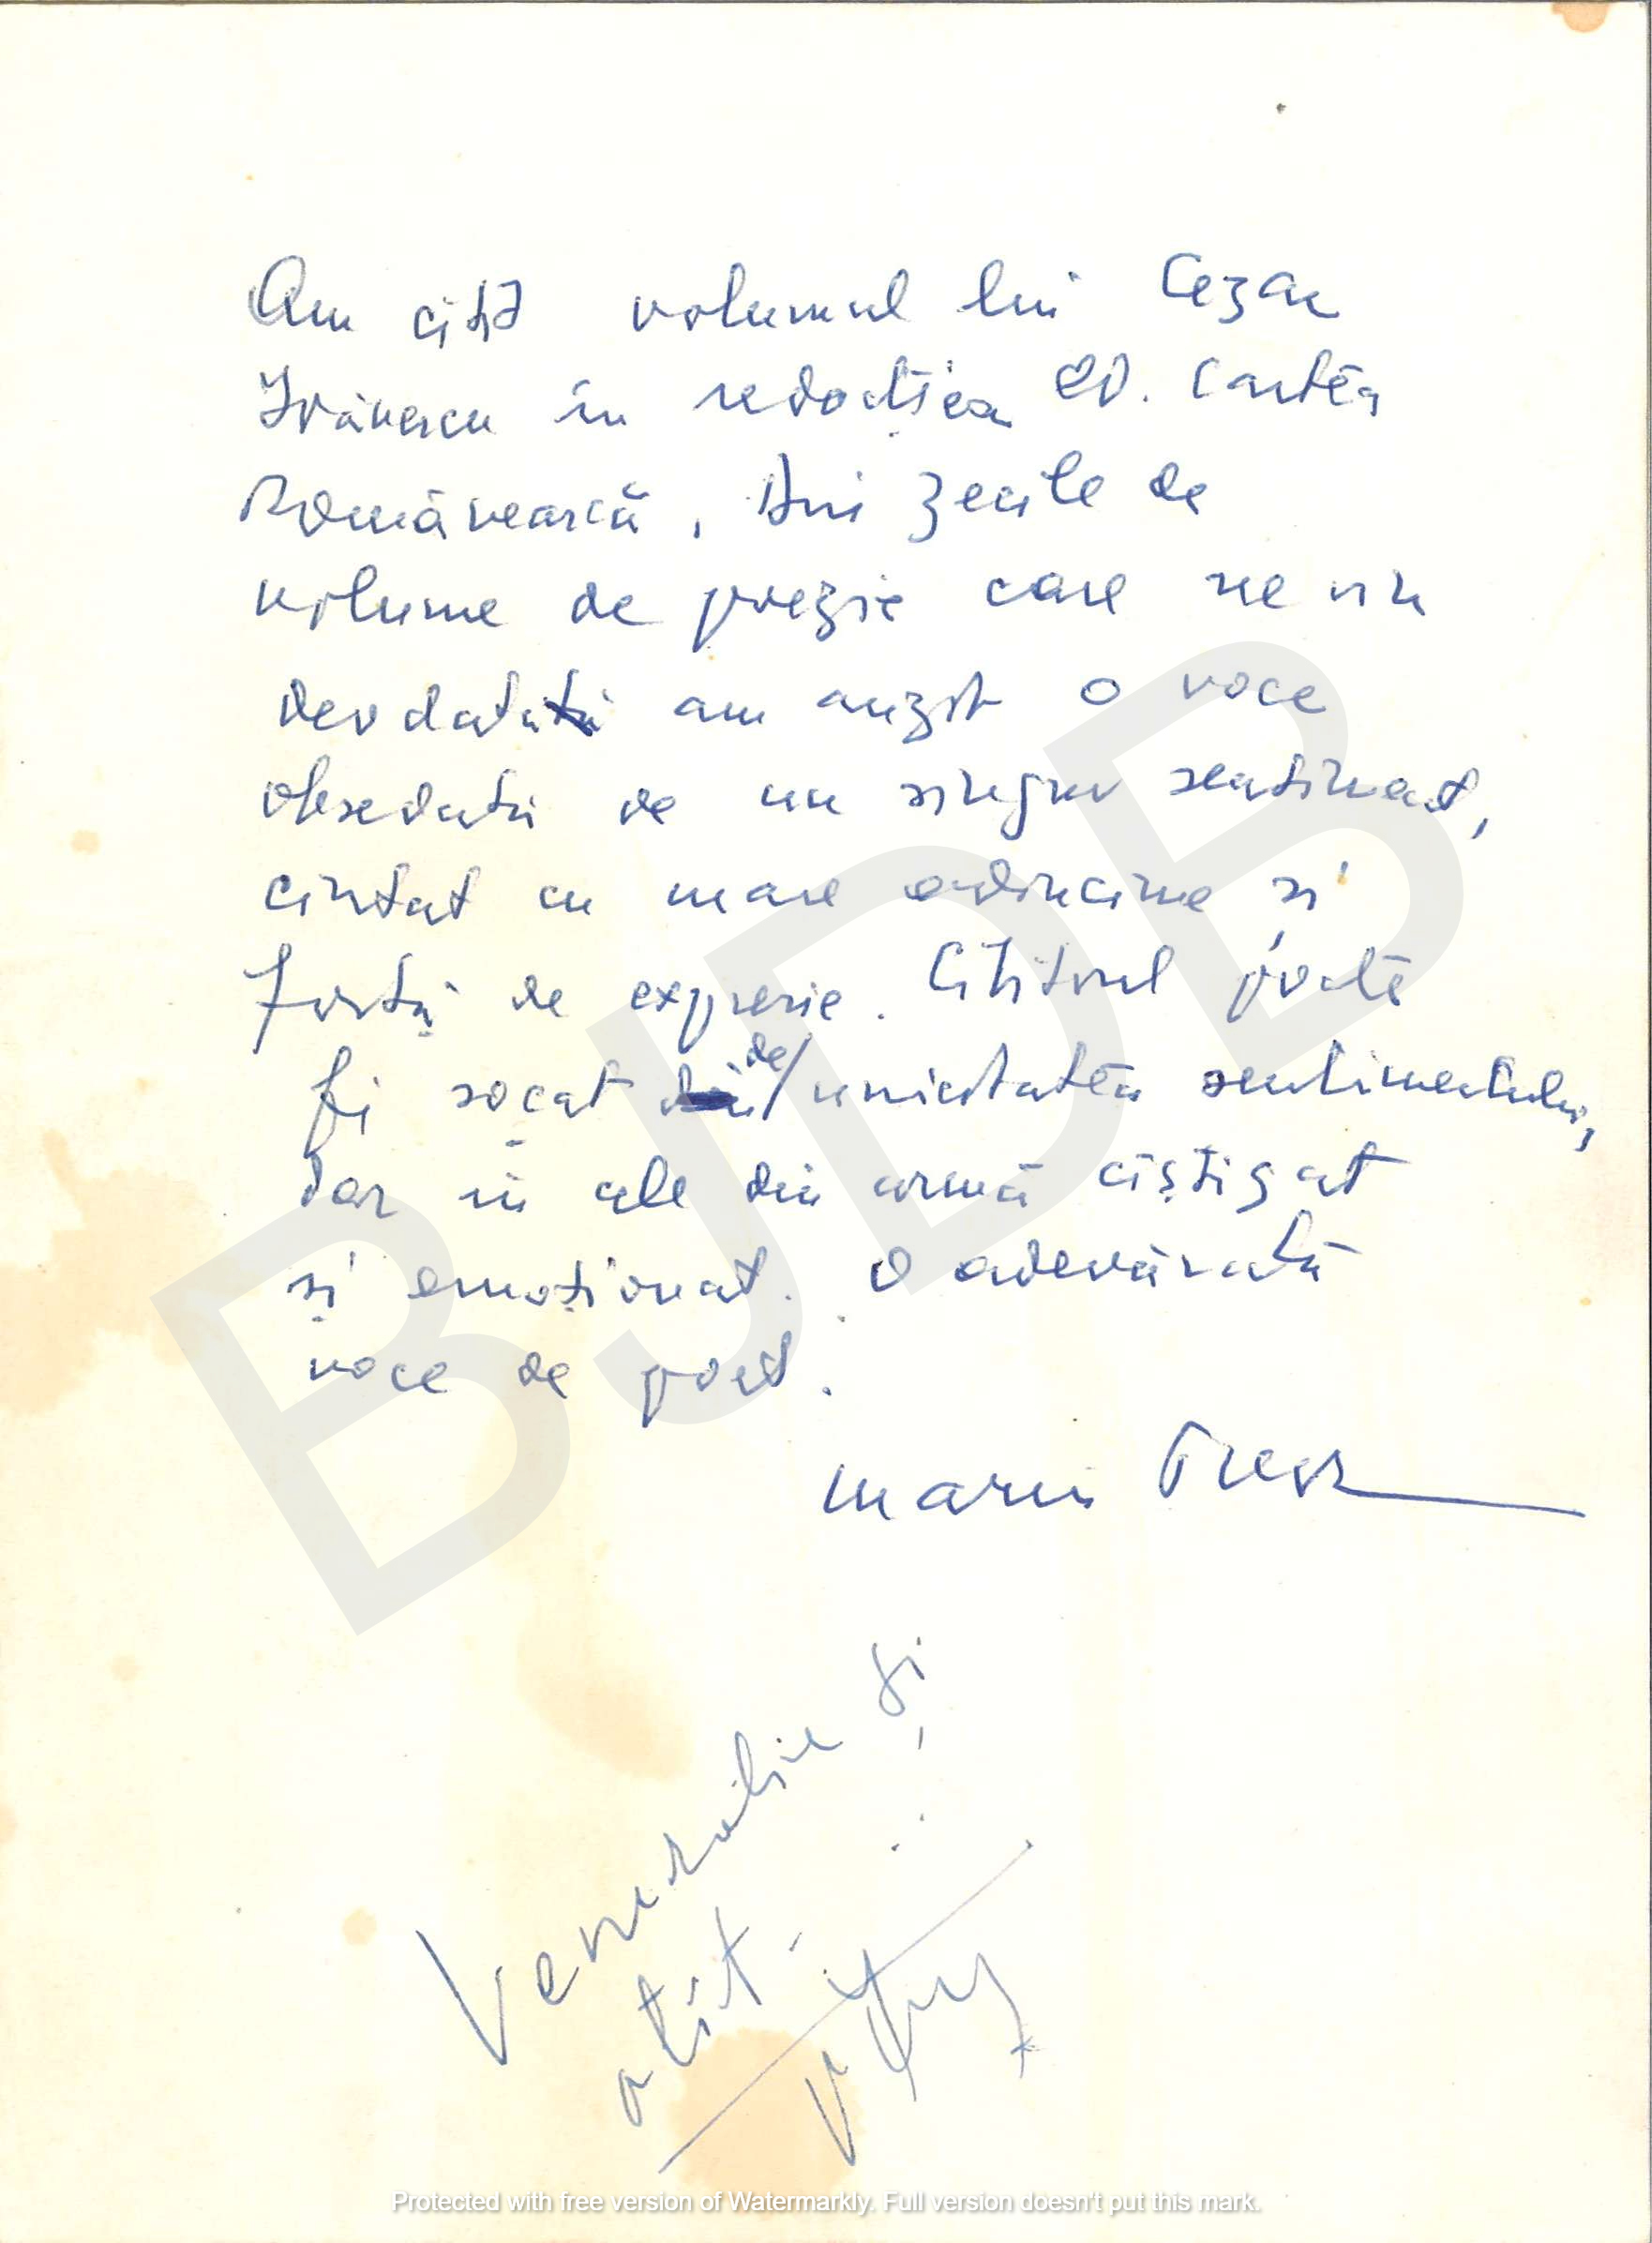 Am citit volumul lui Cezar
Ivănescu în redacția ED. Cartea
Românească. Din zecile de
volume de poezie care ne vin
deodată am auzit o voce
obsedată de un singur sentiment,
cîntat cu mare adîncime și
forță de expresie. Cititorul poate
fi șocat de unicitatea sentimentului,
dar în cele din urmă cîștigat
și emoționat. O adevărată
voce de poet.
Marin Preda
Venerabile și
atît.
BJDB
Protected with free version of Watermarkly. Full version doesn't put this mark.